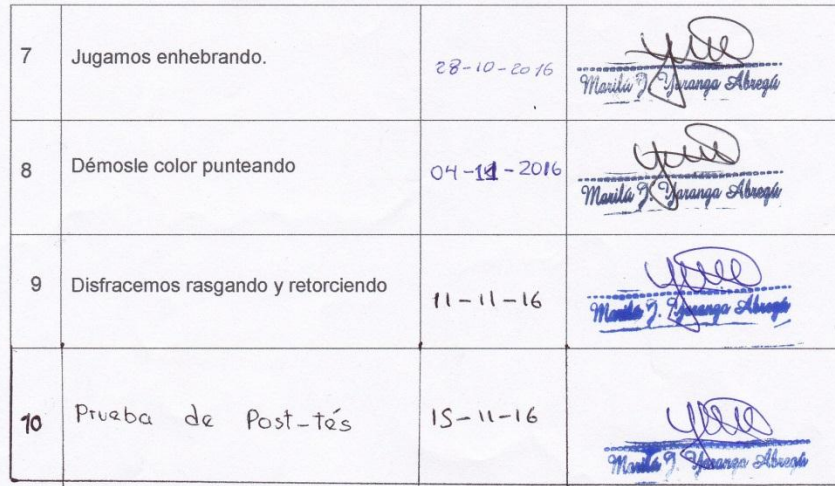 7 Jugamos enhebrando. 28-10-2016
Marilú J. Yaranga Abregú
8 Démosle color punteando 04-11-2016
Marilú J. Yaranga Abregú
9 Disfracemos rasgando y retorciendo 11-11-16
Marilú J. Yaranga Abregú
10 Prueba de Post-tés 15-11-16
Marilú J. Yaranga Abregú